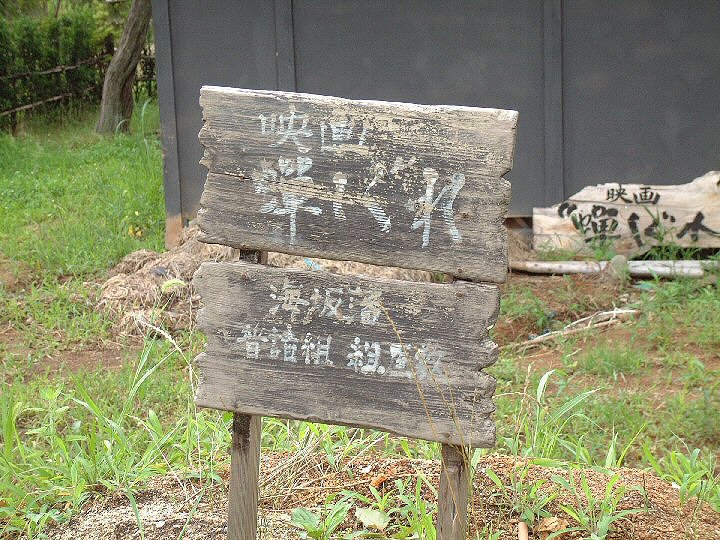 映画
蝉しぐれ
海坂藩
普請組 組屋敷
映画